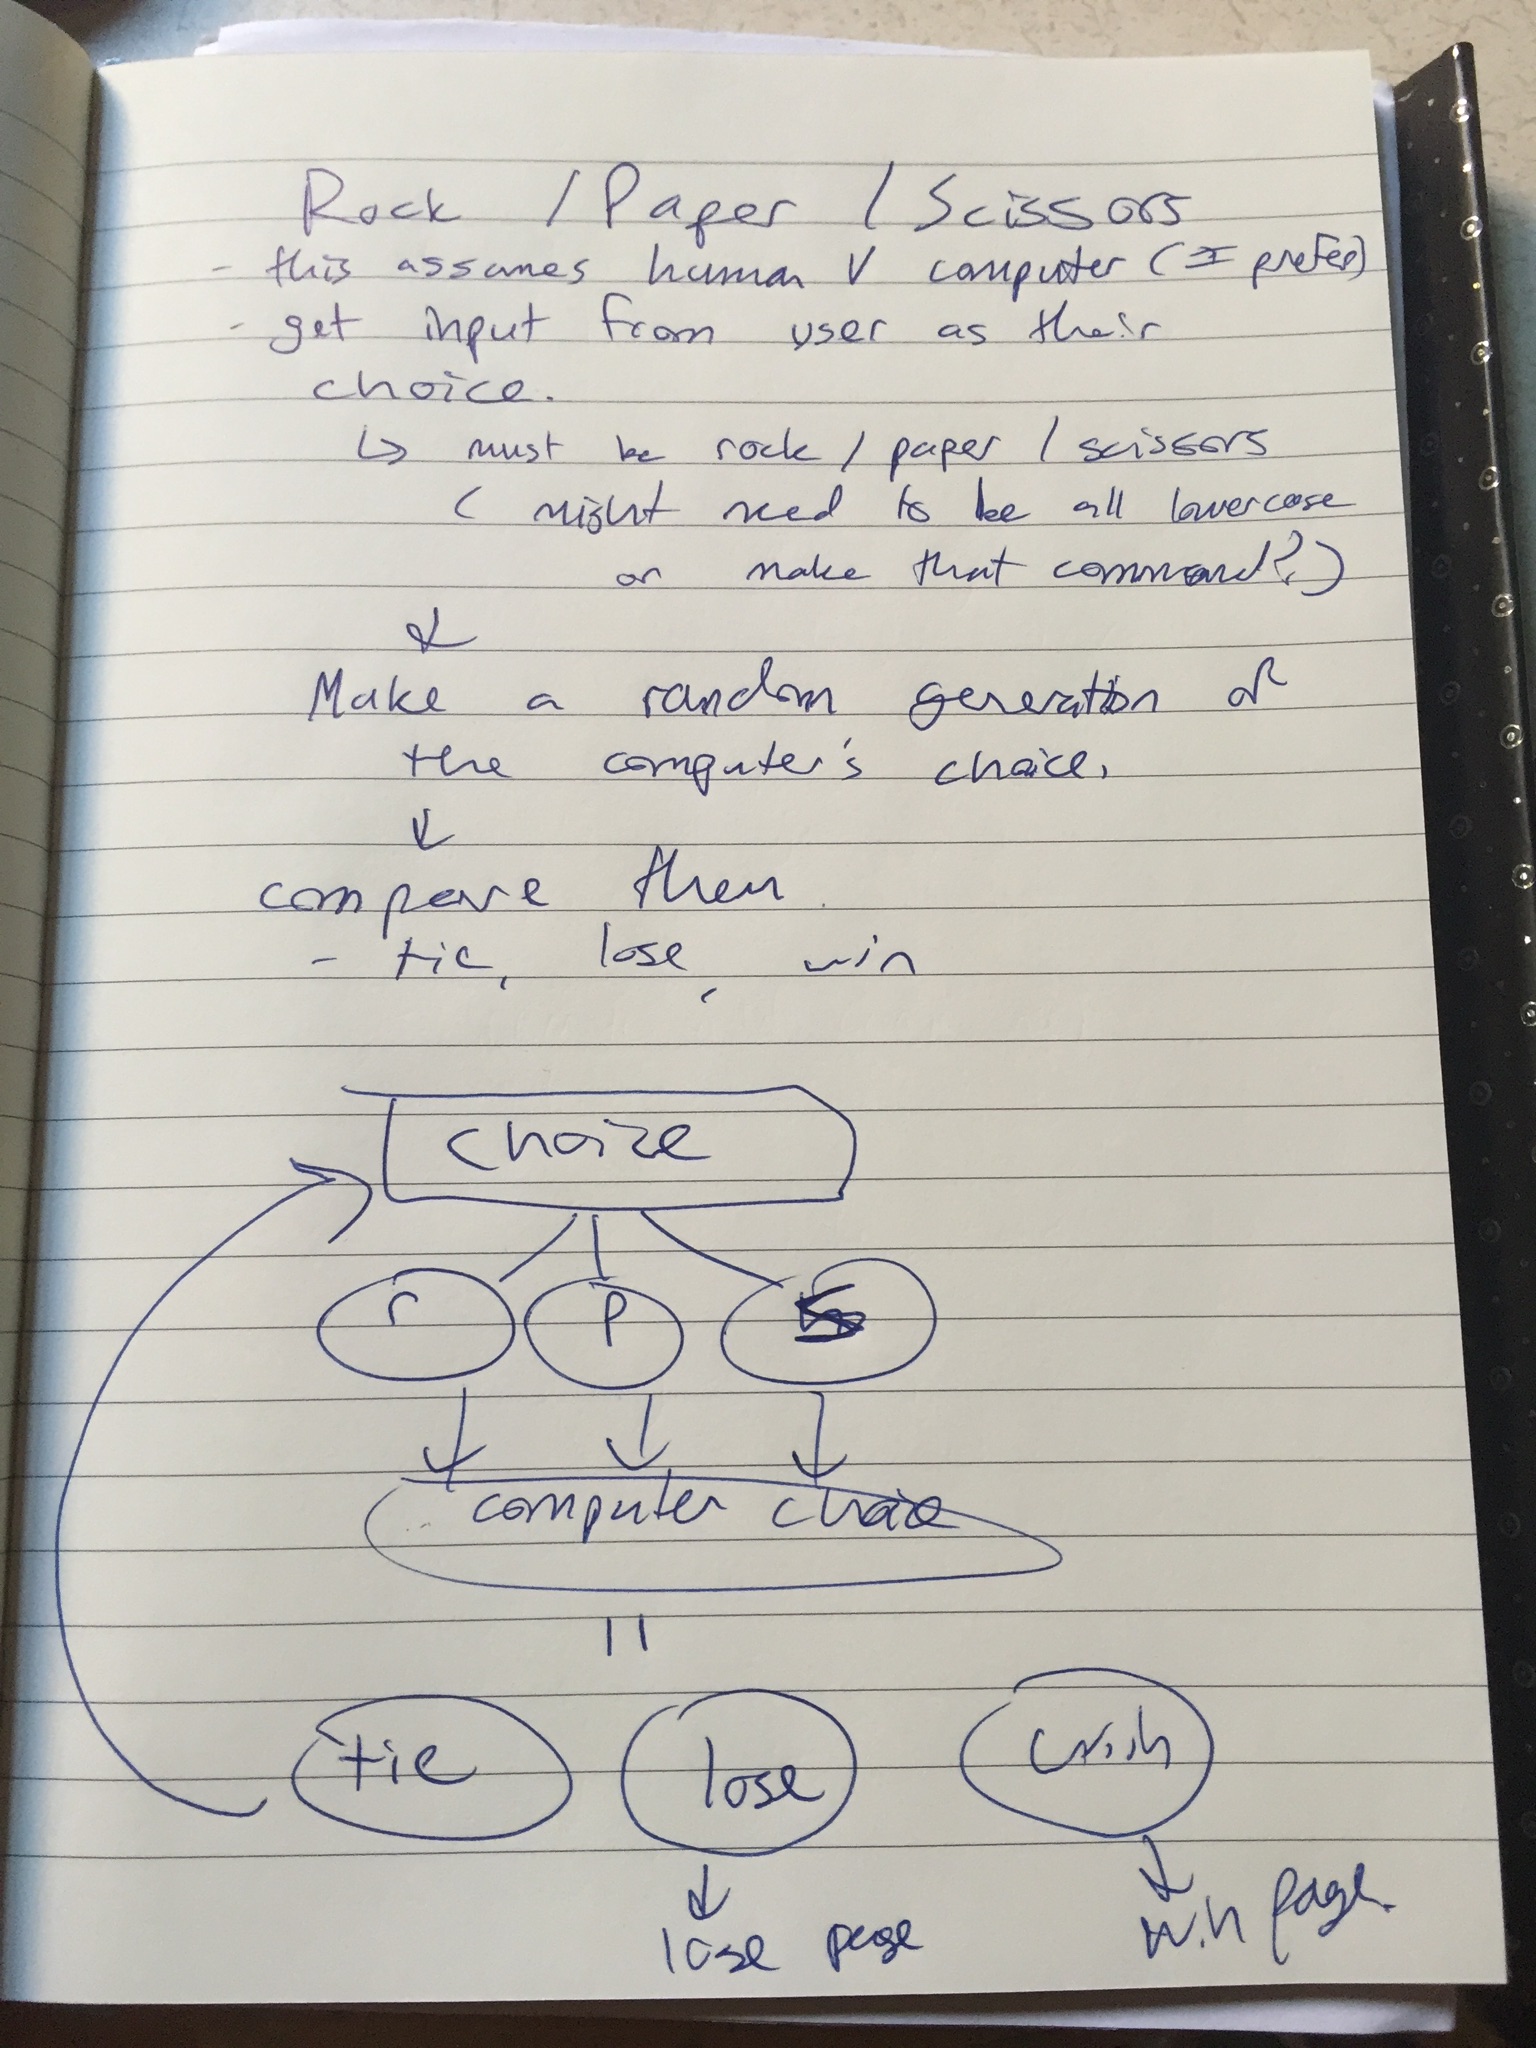 Rock / Paper / Scissors
- this assumes human V computer (I prefer)
- get input from user as their
choice.
↳ must be rock / paper / scissors
( might need to be all lowercase
or make that command?)
↓
Make a random generation of
the computer's choice.
↓
compare them.
- tie, lose, win
choice
r p s
computer choice
=
tie lose win
lose page win page.